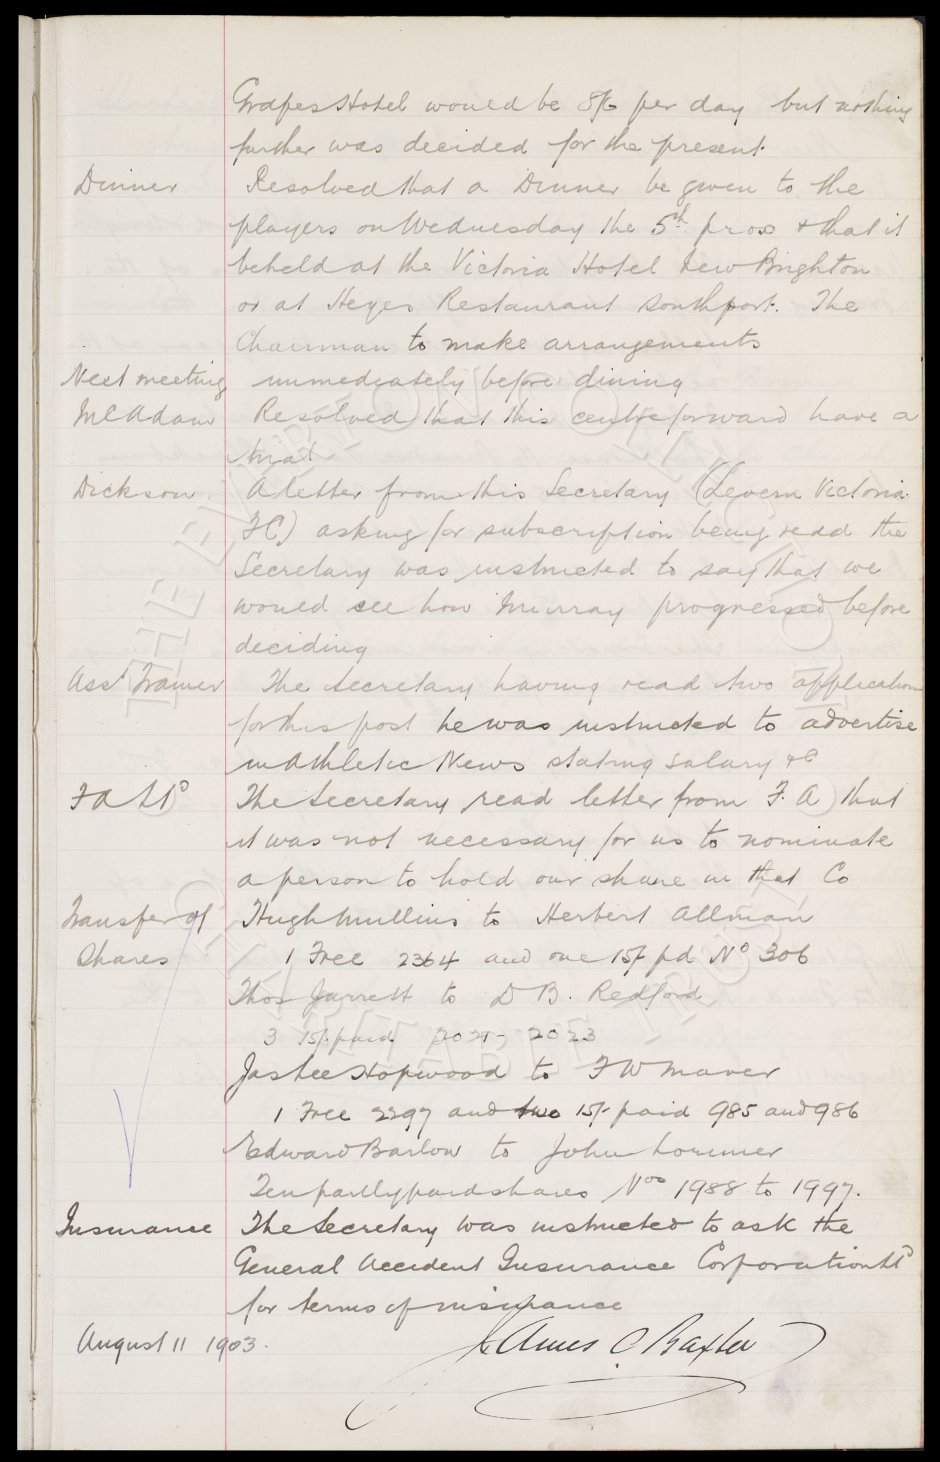 Grapes Hotel would be 8/6 per day but nothing
further was decided for the present.
Dinner Resolved that a Dinner be given to the
players on Wednesday the 5th prox & that it
be held at the Victoria Hotel New Brighton
or at Heyes Restaurant Southport. The
Chairman to make arrangements
Next meeting immediately before dining
McAdam Resolved that this centre forward have a
trial
Dickson A letter from this Secretary (Levern Victoria
FC) asking for subscription being read the
Secretary was instructed to say that we
would see how Murray progressed before
deciding
Asst Trainer The Secretary having read two applications
for this post he was instructed to advertise
in Athletic News stating salary &c
F A Ltd The Secretary read letter from F. A that
it was not necessary for us to nominate
a person to hold our share in that Co
Transfer of Hugh Mullins to Herbert Allman
Shares 1 Free 2364 and one 15/- pd No 306
Thos Jarrett to D B. Redford
3 15/- paid 2021 - 2023
Jas Lee Hopwood to F W Maver
1 Free 2297 and two 15/- paid 985 and 986
Edward Barlow to John Lorimer
Ten partly paid shares Nos 1988 to 1997.
Insurance The Secretary was instructed to ask the
General Accident Insurance Corporation Ld
for terms of insurance
August 11 1903. James C Baxter
THE EVERTON COLLECTION
CHARITABLE TRUST